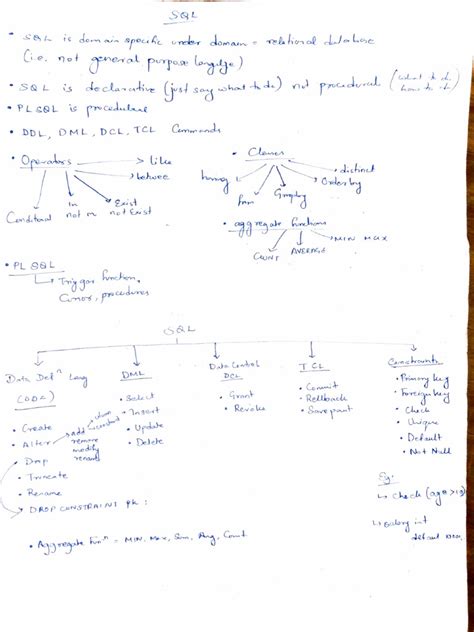 SQL
• SQL is domain specific under domain = relational database
(i.e. not general purpose
• SQL is declarative (just say what to do) not procedural (what to do
how to do)
• PL SQL is procedural
• DDL, DML, DCL, TCL Commands
• Operators
→ like
• Clauses
→ distinct
→ Order by
having
Conditional
In
not in
Exist
not Exist
• aggregate functions
→ MIN MAX
COUNT AVERAGE
• PL SQL
→ Trigger function,
Cursor, procedures
SQL
Data Defⁿ Lang
(DDL)
• Create
• Alter
add
remove
modify
• Drop
• Truncate
• Rename
→ DROP CONSTRAINT PK :
DML
• Select
• Insert
• Update
• Delete
Data Control
DCL
• Grant
• Revoke
TCL
• Commit
• Rollback
Constraints
• Primary key
• Foreign key
• Check
• Unique
• Default
• Not Null
Eg:
int
• Aggregate Funⁿ = MIN, Max, Sum, Avg, Count